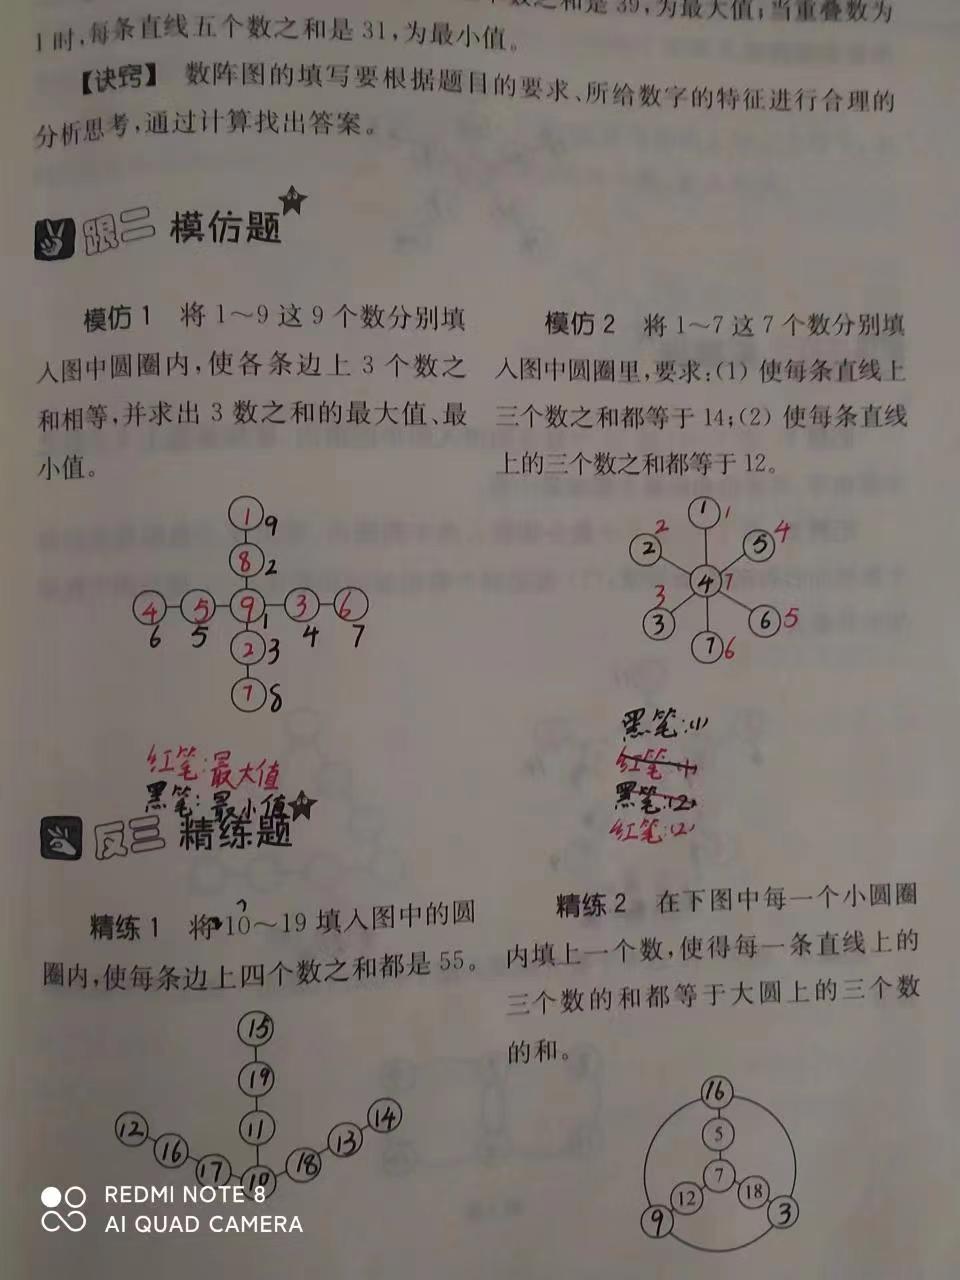 数之和是39,为最大值;当重叠数为
1时,每条直线五个数之和是31,为最小值。
【诀窍】 数阵图的填写要根据题目的要求、所给数字的特征进行合理的
分析思考,通过计算找出答案。
跟二 模仿题
模仿1 将1~9这9个数分别填
入图中圆圈内,使各条边上3个数之
和相等,并求出3数之和的最大值、最
小值。
1 9
8 2
4 5 9 3 6
6 5 1 4 7
2 3
7 8
红笔:最大值
黑笔:最小值
模仿2 将1~7这7个数分别填
入图中圆圈里,要求:(1)使每条直线上
三个数之和都等于14;(2)使每条直线
上的三个数之和都等于12。
1 1
2 2 5 4
4 7
3 3 6 5
7 6
黑笔:(1)
红笔:(1)
黑笔:(2)
红笔:(2)
反三 精练题
精练1 将10~19填入图中的圆
圈内,使每条边上四个数之和都是55。
15
19
12 11 14
16 13
17 10 18
精练2 在下图中每一个小圆圈
内填上一个数,使得每一条直线上的
三个数的和都等于大圆上的三个数
的和。
16
5
7
12 18
9 3
REDMI NOTE 8
AI QUAD CAMERA